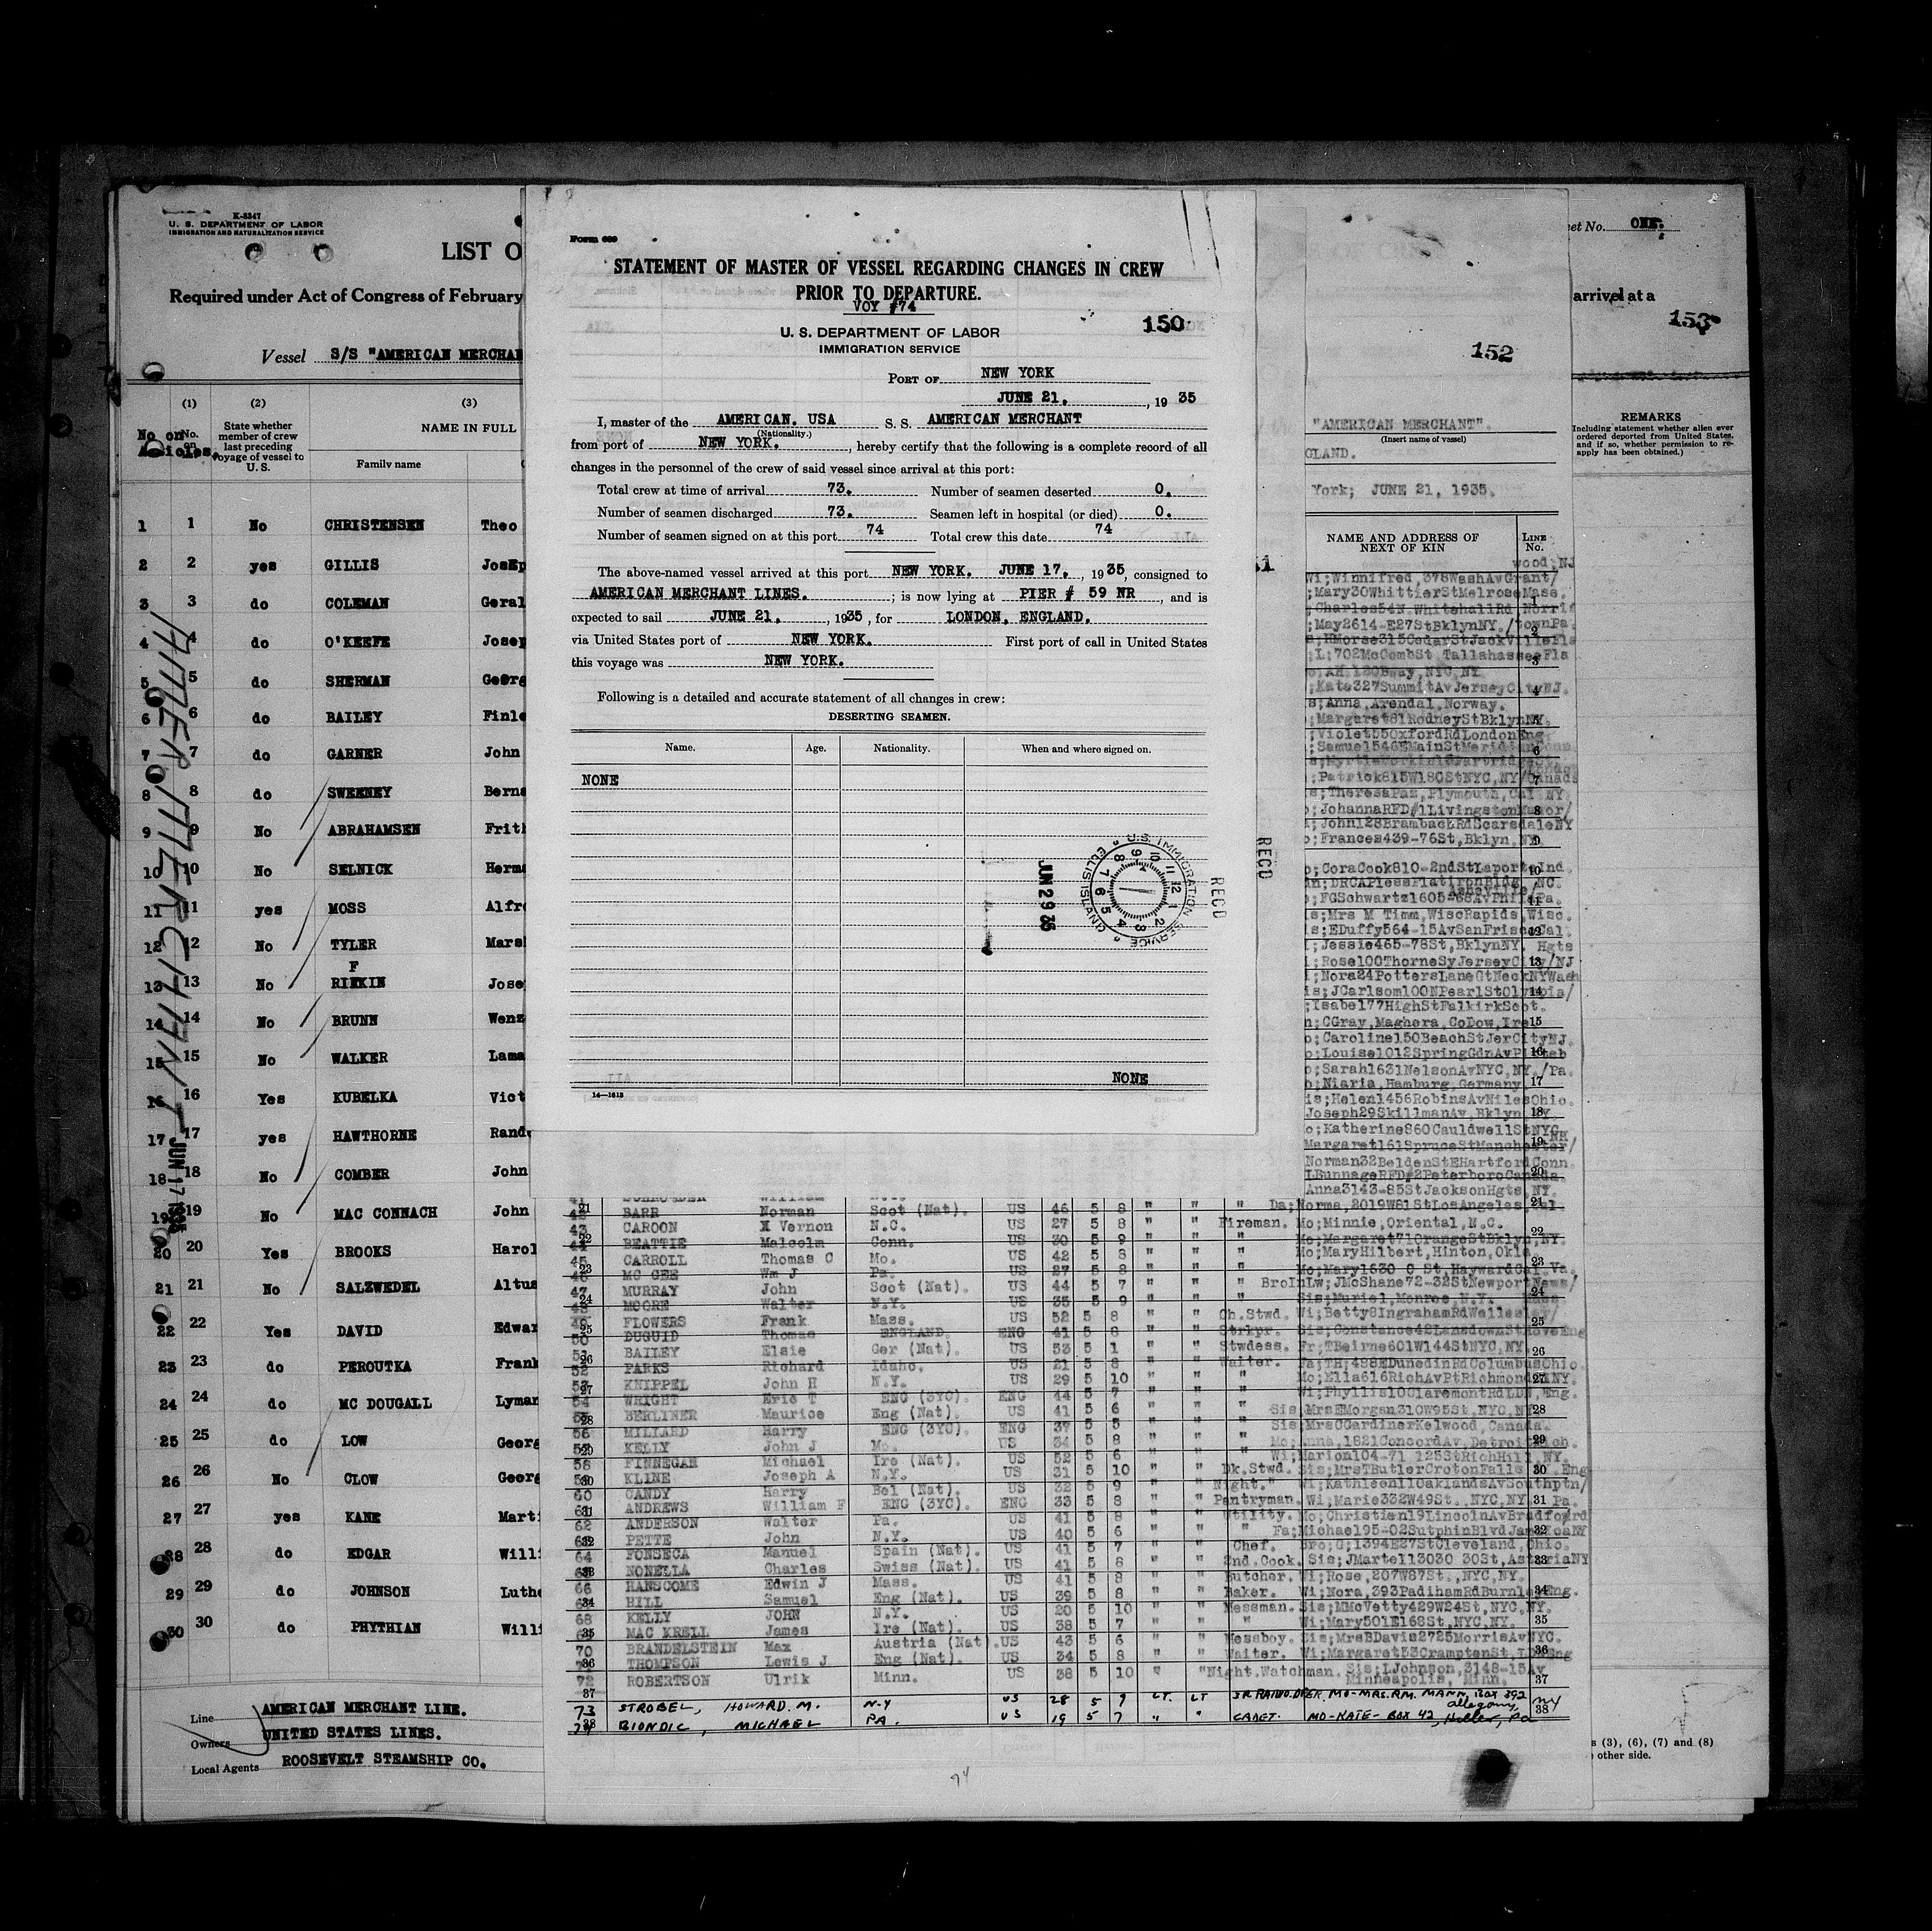 K-5347
U. S. DEPARTMENT OF LABOR
IMMIGRATION AND NATURALIZATION SERVICE
LIST O
Required under Act of Congress of February
Vessel S/S "AMERICAN MERCHAN
(1) (2) (3)
No on Articles. No. on State whether member of crew last preceding voyage of vessel to U. S. NAME IN FULL
Family name
1 1 No CHRISTENSEN Theo
2 2 yes GILLIS JosEp
3 3 do COLEMAN Geral
4 4 do O'KEEFE Josep
5 5 do SHERMAN Georg
6 6 do BAILEY Finle
7 7 do GARNER John
8 8 do SWEENEY Berna
9 9 No ABRAHAMSEN Frith
10 10 No SELNICK Herma
11 11 yes MOSS Alfre
12 12 No TYLER Mars
13 13 No RIFKIN Jose
14 14 No BRUNN Wenz
15 15 No WALKER Lama
16 16 Yes KUBELKA Vict
17 17 yes HAWTHORNE Rand
18 18 No COMBER John
19 19 No MAC CONNACH John
20 20 Yes BROOKS Harol
21 21 No SALZWEDEL Altus
22 22 Yes DAVID Edwar
23 23 do PEROUTKA Frank
24 24 do MC DOUGALL Lyman
25 25 do LOW Georg
26 26 No CLOW Georg
27 27 yes KANE Marti
28 28 do EDGAR Willi
29 29 do JOHNSON Luthe
30 30 do PHYTHIAN Willi
AMER MERCHANT
JUN 17 1935
Line AMERICAN MERCHANT LINE.
Owners UNITED STATES LINES.
Local Agents ROOSEVELT STEAMSHIP CO.
Form 689
STATEMENT OF MASTER OF VESSEL REGARDING CHANGES IN CREW
PRIOR TO DEPARTURE.
VOY #74
U. S. DEPARTMENT OF LABOR
IMMIGRATION SERVICE
150
PORT OF NEW YORK
JUNE 21. , 19 35
I, master of the AMERICAN. USA S. S. AMERICAN MERCHANT
(Nationality.)
from port of NEW YORK. , hereby certify that the following is a complete record of all
changes in the personnel of the crew of said vessel since arrival at this port:
Total crew at time of arrival 73. Number of seamen deserted 0.
Number of seamen discharged 73. Seamen left in hospital (or died) 0.
Number of seamen signed on at this port 74 Total crew this date 74
The above-named vessel arrived at this port NEW YORK. JUNE 17. , 1935, consigned to
AMERICAN MERCHANT LINES. ; is now lying at PIER # 59 NR , and is
expected to sail JUNE 21. , 1935 , for LONDON, ENGLAND.
via United States port of NEW YORK. First port of call in United States
this voyage was NEW YORK.
Following is a detailed and accurate statement of all changes in crew:
DESERTING SEAMEN.
Name. Age. Nationality. When and where signed on.
NONE
U.S. IMMIGRATION SERVICE ELLIS ISLAND
JUN 29 35
RECD
RECD
NONE
14—1613
152
"AMERICAN MERCHANT".
(Insert name of vessel)
GLAND.
York; JUNE 21, 1935.
NAME AND ADDRESS OF NEXT OF KIN LINE No.
wood,NJ
Wi;Winnifred,378WashAvGrant/
;Mary30WhittierStMelroseMass.
Charles54N.WhitehallRd Norris
;May2614-E27StBklynNY./townPa.
;HMorse315CedarStJackVilleFla
;L;702McCombSt TallahasseeFla
AH,180Bway,NYC,NY
;Kate327SummitAvJerseyCityNJ.
s;Anna,Arendal,Norway.
;Margaret81RodneyStBklynNY.
;Violet550xfordRdLondonEng
;Samuel546EMainStMeridianConn.
;Patrick815W180StNYC,NY/Canada
s;TheresaPaz,Plymouth,Cal NY.
;JohannaRFD#1LivingstonManor/
;John128BrambachRdScarsdaleNY
;Frances439-76St,Bklyn,NY.
;CoraCook810-2ndStLaporteInd.
;FGSchwartz1605-68AvPhilaPa.
is;Mrs M Timm,WiscRapids,Wisc.
s;EDuffy564-15AvSanFriscoCal.
;Jessie465-78St,BklynNY. Hgts
;Rose100ThorneSyJerseyCity/NJ
;Nora24PottersLaneGtNeckNYWash
is;JCarlsom100NPearlStOlympia/
;Isabel77HighStFalkirkScot.
n;CGray,Maghera,CoDow,Ire
o;Caroline150BeachStJerCityNJ.
o;Louise1012SpringGdnAvPittsb
o;Sarah1631NelsonAvNYC,NY./Pa.
o;Niaria,Hamburg,Germany
is;Helen1456RobinsAvNilesOhio.
Joseph29SkillmanAv,Bklyn NY
o;Katherine860CauldwellStNYC
Margaret161SpruceStManchester/ NH
Norman32BeldenStEHartfordConn.
LBunnageRFD#2PeterboroCanada
Anna3143-85StJacksonHgts,NY.
41 SCHROEDER William
42 BARR Norman Scot (Nat). US 46 5 8 " " " Da;Norma,2019W81StLosAngeles,Cal
43 CAROON X Vernon N.C. US 27 5 8 " " Fireman. Mo;Minnie,Oriental,N.C.
44 BEATTIE Malcolm Conn. US 30 5 9 " " " Mo;Margaret71OrangeStBklyn,NY.
45 CARROLL Thomas C Mo. US 42 5 8 " " " Mo;MaryHilbert,Hinton,Okla.
46 MC GEE Wm J Pa. US 27 5 8 " " " Mo;Mary1630 C St,HaywardCal Va.
47 MURRAY John Scot (Nat). US 44 5 7 " " " BroInLw;JMcShane72-32StNewportNews/
48 MOORE Walter N.Y. US 35 5 9 " " " Sis;Muriel,Monroe,N.Y. Mass
49 FLOWERS Frank Mass. US 52 5 8 " " Ch.Stwd. Wi;Betty8IngrahamRdWellesley/
50 DUGUID Thomas ENGLAND. ENG 41 5 8 " " Strkpr. Sis;Constance42LansdownStHoveEng
51 BAILEY Elsie Ger (Nat). US 53 5 1 " " Stwdess. Fr;TBeirne601W144StNYC,NY
52 PARKS Richard Idaho. US 21 5 8 " " Waiter. Fa;TH;488EDunedinRdColumbusOhio.
53 KNIPPEL John H N.Y. US 29 5 10 " " " Mo;Ella616RichAvPtRichmond NY.
54 WRIGHT Eric T ENG (3YC). ENG 44 5 7 " " " Wi;Phyllis10ClaremontRdLDN,Eng.
55 BERLINER Maurice Eng (Nat). US 41 5 6 " " " Sis;MrsEMorgan310W95St,NYC,NY
56 MILLARD Harry ENG (3YC). ENG 37 5 5 " " " Sis;MrsCGardinerKelwood,Canada.
57 KELLY John J Mo. US 34 5 8 " " " Mo;Anna,1821ConcordAv,DetroitMich.
58 FINNEGAN Michael Ire (Nat). US 52 5 6 " " " Wi;Marion104-71 125StRichHill,NY.
59 KLINE Joseph A N.Y. US 31 5 10 " " Dk.Stwd. Sis;MrsTButlerCrotonFalls Eng
60 CANDY Harry Bel (Nat). US 32 5 9 " " Night." Wi;Kathleen11OaklandsAvSouthptn/
61 ANDREWS William F ENG (3YC). ENG 33 5 8 " " Pantryman. Wi,Marie332W49St.,NYC,NY Pa.
62 ANDERSON Walter Pa. US 41 5 8 " " Utility. Mo;Christien19LincolnAvBradford
63 PETTE John N.Y. US 40 5 6 " " " Fa;Michael95-02SutphinBlvdJamaicaNY
64 FONSECA Manuel Spain (Nat). US 41 5 7 " " Chef. Bro;G;1394E27StCleveland,Ohio.
65 NONELLA Charles Swiss (Nat). US 41 5 8 " " 2nd.Cook. Sis;JMartell3030 30St,AstoriaNY
66 HANSCOME Edwin J Mass. US 41 5 8 " " Butcher. Wi;Rose,207W87St.,NYC,NY.
67 HILL Samuel Eng (Nat). US 39 5 8 " " Baker. Wi;Nora,393PadihamRdBurnleyEng.
68 KELLY JOHN N.Y. US 20 5 10 " " Messman. Sis;MMcVetty429W24St,NYC,NY.
69 MAC KRELL James Ire (Nat). US 38 5 7 " " " Wi;Mary501E168St,NYC,NY.
70 BRANDELSTEIN Max Austria (Nat). US 43 5 6 " " Messboy. Sis;MrsBDavis2725MorrisAvNYC.
71 THOMPSON Lewis J Eng (Nat). US 34 5 8 " " Waiter. Wi;Margaret53CramptenSt,LDNEng
72 ROBERTSON Ulrik Minn. US 38 5 10 " "Night.Watchman. Sis;LJohnson,3148-15Av Minneapolis, Minn.
73 STROBEL, HOWARD. M. N.Y US 28 5 9 LT. LT JR RAIDO. OPER. MO-MRS. RM. MANN, BOX 392 allegany, NY
74 BIONDIC, MICHAEL PA. US 19 5 7 " " CADET. MO-KATE-BOX 42, Hiller, Pa
74
et No. ONE.
arrival at a
153
REMARKS
(Including statement whether alien ever ordered deported from United States, and if so, whether permission to reapply has been obtained.)
s (3), (6), (7) and (8)
other side.